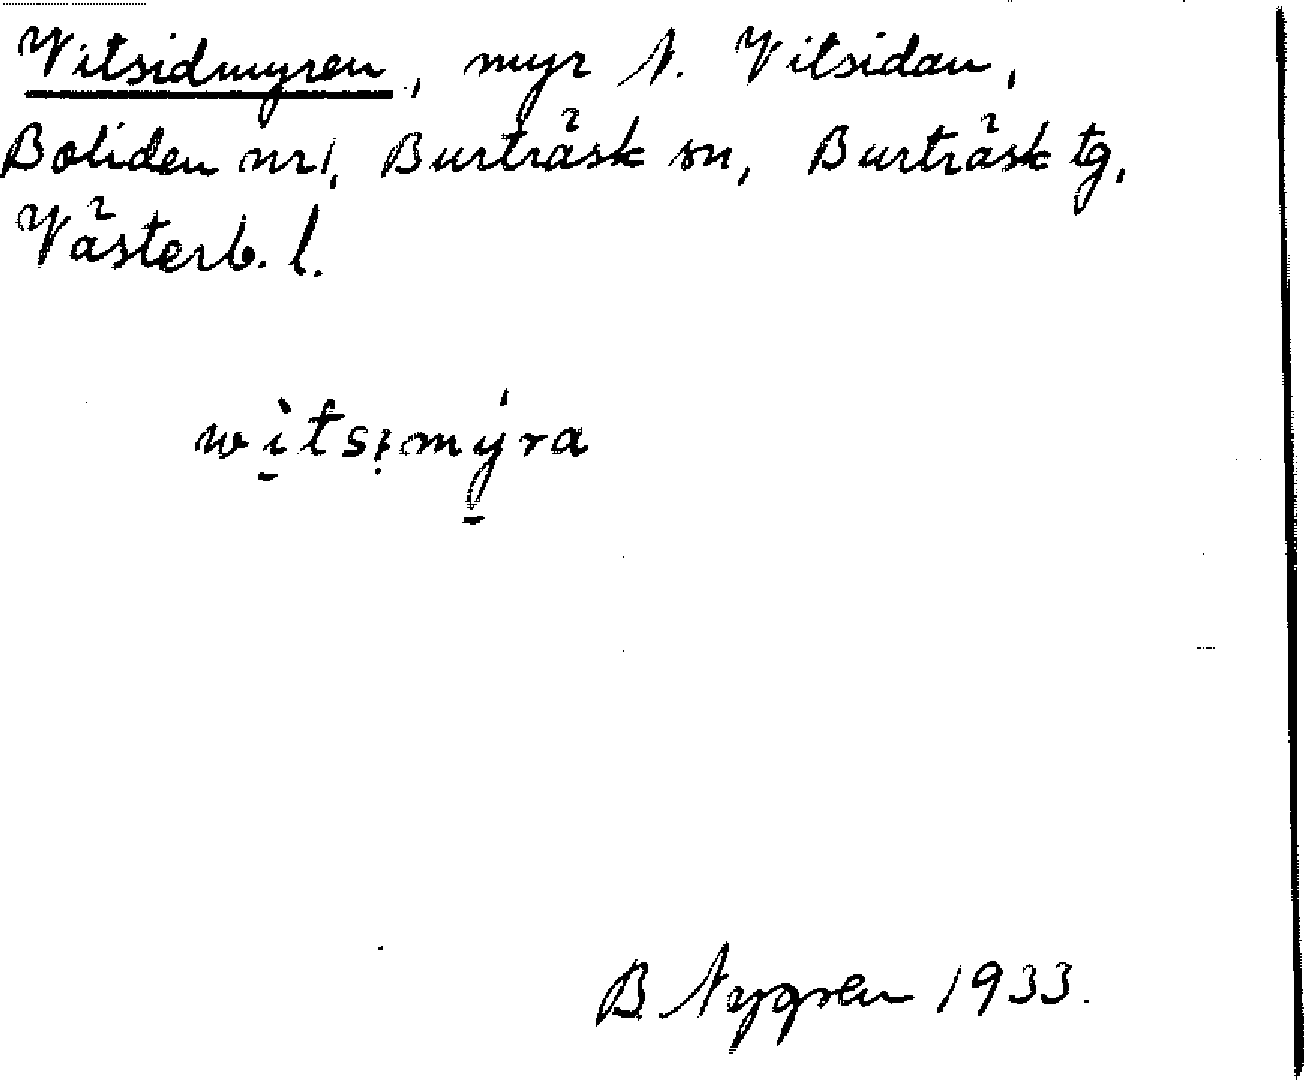 Vitsidmyren, myr N. Vitsidan,
Boliden nr 1, Burträsk sn, Burträsk tg,
Västerb. l.
wìtsımýra
B Nygren 1933.